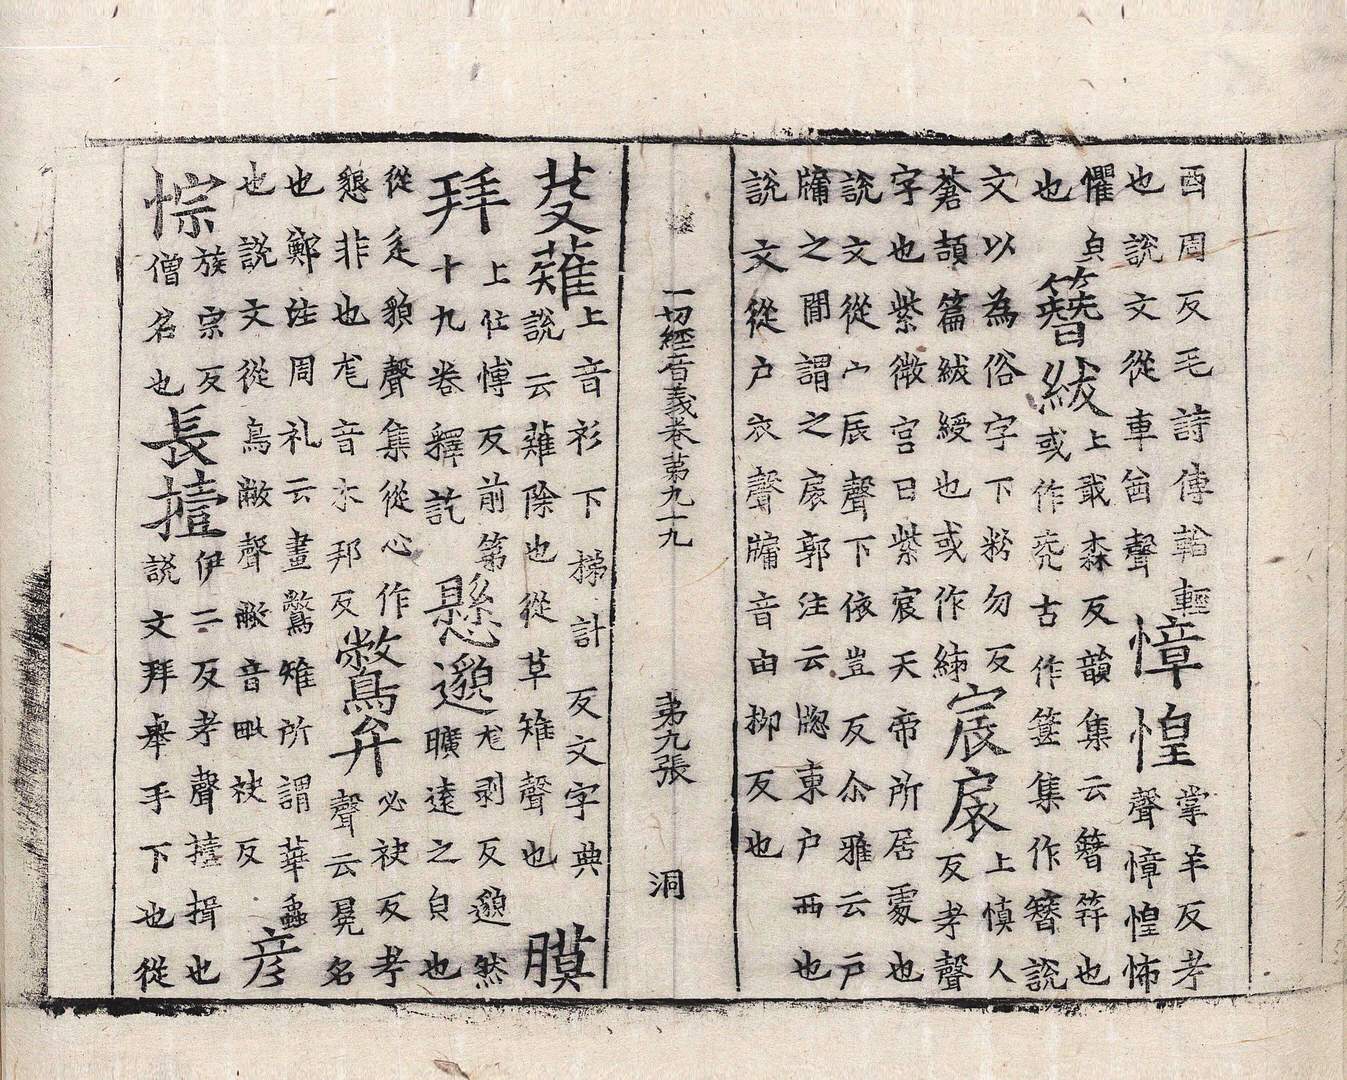 酉周反毛詩傳輶輕
也說文從車酋聲
慞惶
掌羊反考
聲慞惶怖
懼皃
也
簪紱
上戢森反韻集云簪笄也
或作兂古作簮集作簪說
文以為俗字下粉勿反
蒼頡篇紱綬也或作䋞
宸扆
上慎人
反考聲
字也紫微宮曰紫宸天帝所居處也
說文從宀辰聲下依豈反尒雅云戶
牖之間謂之扆郭注云牕東戶西也
說文從戶衣聲牖音由柳反也
一切經音義卷第九十九 第九張 洞
芟薙
上音衫下梯計反文字典
說云薙除也從草雉聲也
膜
拜
上仕愽反前第
十九卷釋訖
懸邈
尨剥反邈然
曠遠之皃也
從辵貌聲集從心作
懇非也尨音木邦反
鷩弁
必袂反考
聲云冕名
也鄭注周礼云畫鷩雉所謂華蟲
也說文從鳥敝聲敝音毗袂反
彦
悰
族宗反
僧名也
長撎
伊二反考聲撎揖也
說文拜舉手下也從